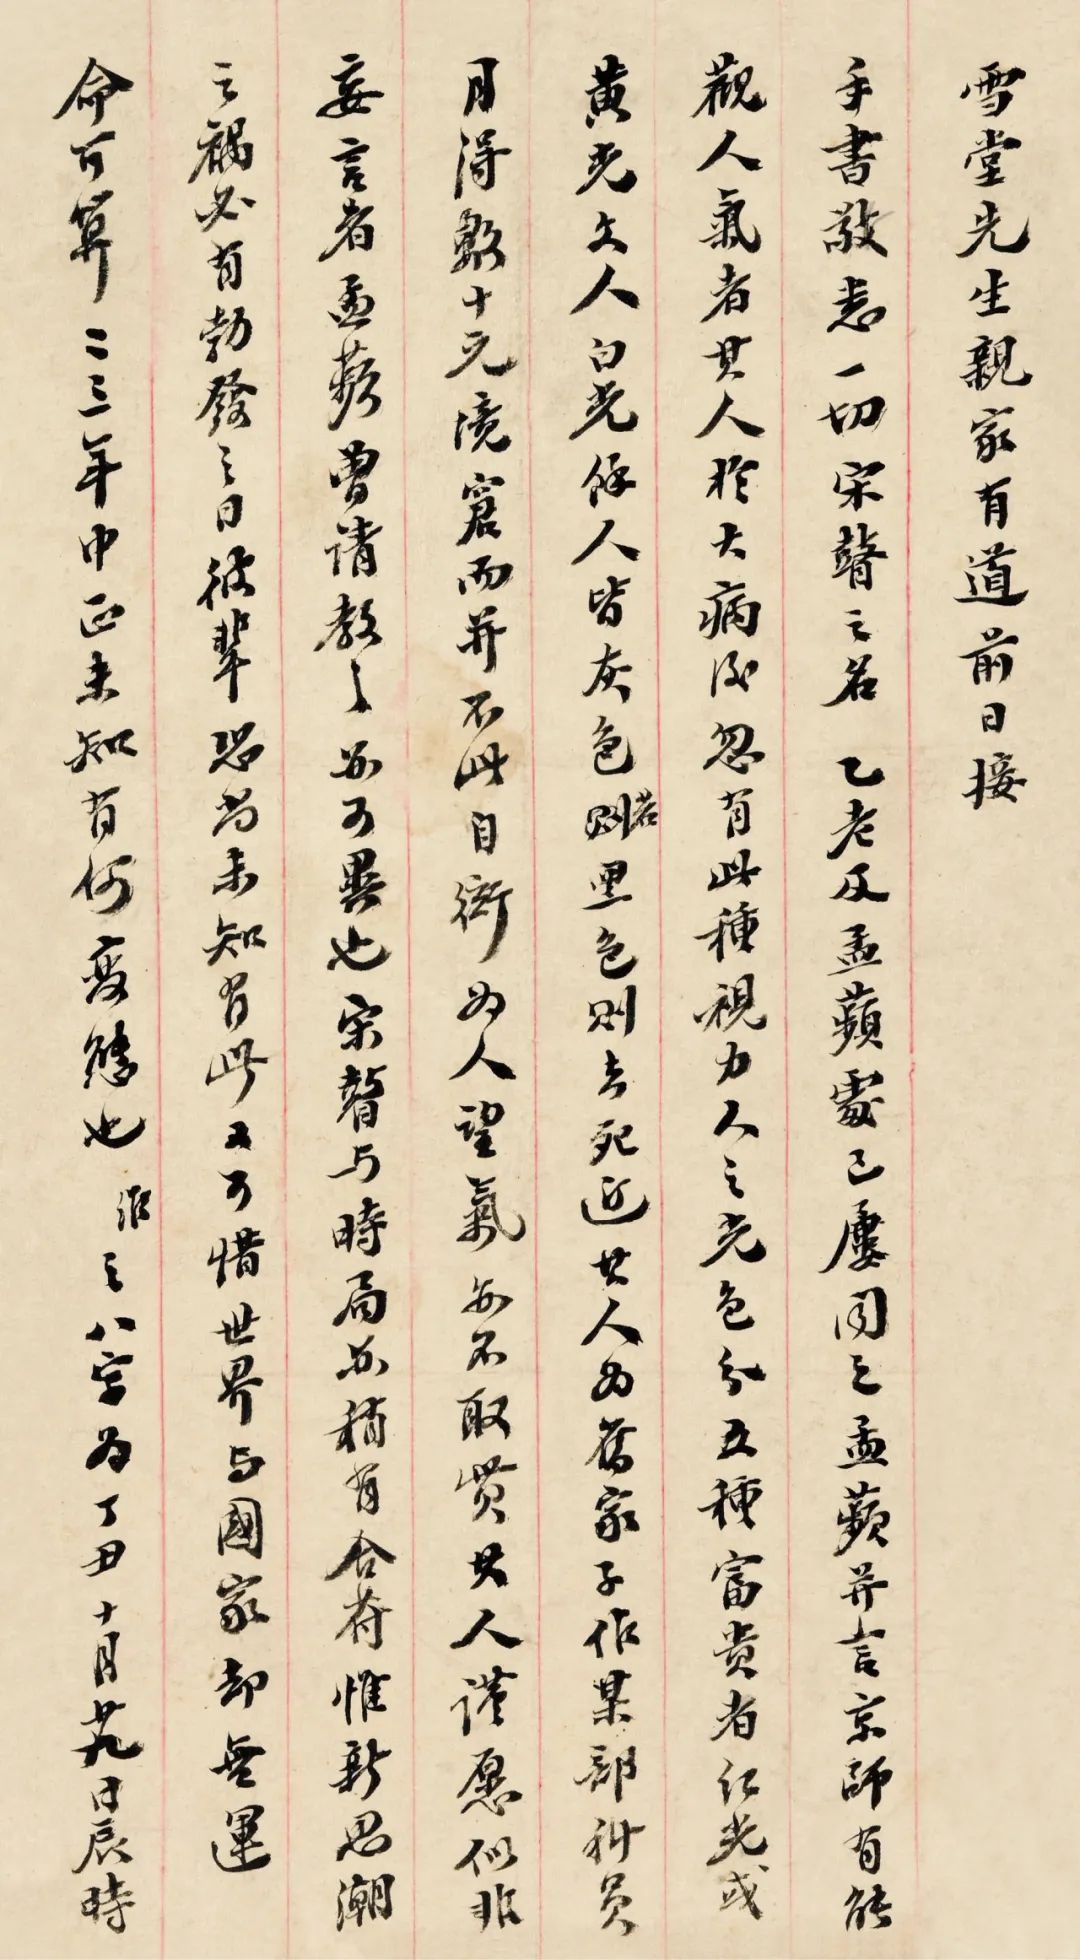 雪堂先生親家有道前日接
手書敬悉一切宋瞽之名乙老及孟蘋處已屢聞之孟蘋并言京師有能
觀人氣者其人於大病後忽有此種視力人之光色分五種富貴者紅光或
黃光文人白光餘人皆灰色若黑色則去死近其人為舊家子作某部科員
月得數十元境窘而并不以此自衒為人望氣亦不取貲其人謹愿似非
妄言者孟蘋曾請教之亦可異也宋瞽与時局亦稍有合符惟新思潮
之禍必有勃發之日彼輩恐尚未知有此又可惜世界与國家却無運
命可算二三年中正未知有何變態也維之八字為丁丑十月廿九日辰時